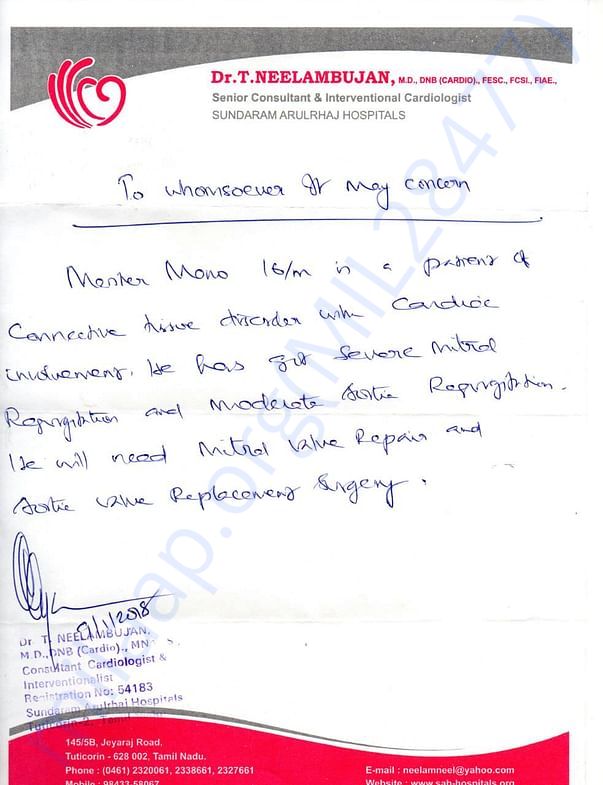 Dr.T.NEELAMBUJAN, M.D., DNB (CARDIO)., FESC., FCSI., FIAE.,
Senior Consultant & Interventional Cardiologist
SUNDARAM ARULRHAJ HOSPITALS
To whomsoever It May concern
Master Mono 16/m is a patient of
Connective tissue disorder with Cardiac
involvement. He has got Severe Mitral
Regurgitation and Moderate Aortic Regurgitation.
He will need Mitral valve Repair and
Aortic valve Replacement Surgery.
9/1/2018
Dr. T. NEELAMBUJAN,
M.D., DNB (Cardio)., MN
Consultant Cardiologist &
Interventionalist
Registration No: 54183
Sundaram Arulrhaj Hospitals
Tuticorin-2, Tamil
145/5B, Jeyaraj Road,
Tuticorin - 628 002, Tamil Nadu.
Phone : (0461) 2320061, 2338661, 2327661
E-mail : neelamneel@yahoo.com
Mobile : 98433-58067
Website : www.sah-hospitals.org
milaap.org(MIL284777)